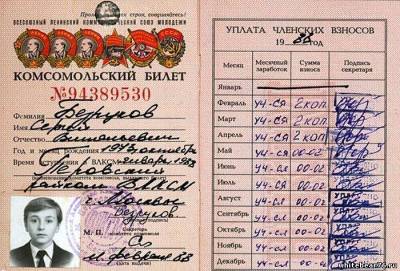 Пролетарии всех стран, соединяйтесь!
ВСЕСОЮЗНЫЙ ЛЕНИНСКИЙ КОММУНИСТИЧЕСКИЙ СОЮЗ МОЛОДЕЖИ
КОМСОМОЛЬСКИЙ БИЛЕТ
№94389530
Фамилия Безруков
Имя Сергей
Отчество Витальевич
Год и месяц рождения 1973 октябрь
Время вступления в ВЛКСМ январь 1988
райком ВЛКСМ
г. Москвы
М. П.
февраля 88
УПЛАТА ЧЛЕНСКИХ ВЗНОСОВ
1988 год
Месяц Месячный заработок Сумма взноса Подпись секретаря
Январь
Февраль уч-ся 2 коп
Март уч-ся 2 коп
Апрель уч-ся 2 коп
Май уч-ся 00-02
Июнь уч-ся 00-02
Июль уч-ся 00-02
Август уч-ся 00-02
Сентябрь уч-ся 00-02
Октябрь уч-ся 00-02
Ноябрь уч-ся 00-02
Декабрь уч-ся 00-02